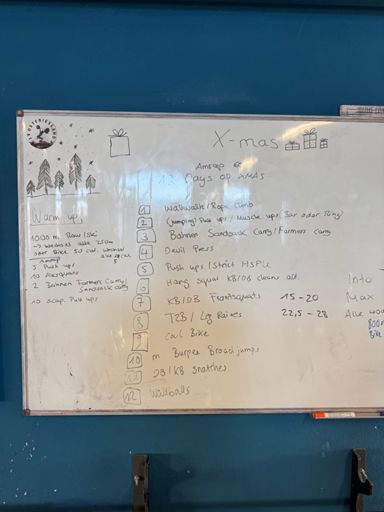 X-mas
Amrap
12 Days of XMAS
Warm up
1000 m Row/Ski
oder Bike 50 cal.
Amrap
5 Push ups
10 Airsquats
2 Bahnen Farmers Carry/
Sandsack carry
10 scap. Pull ups
1 Wallwalk/Rope Climb
2 (jumping) Pull ups/Muscle ups Bar oder Ring
3 Bahnen Sandsack Carry/Farmers Carry
4 Devil Press
5 Push ups/Strict HSPU
6 Hang squat KB/DB cleans
7 KB/DB Frontsquats 15-20
8 T2B/Leg Raises 22,5-28
9 cal Bike
10 m Burpee Broad jumps
11 DB/KB Snatches
12 Wallballs
Into
Max
Alle
Bike